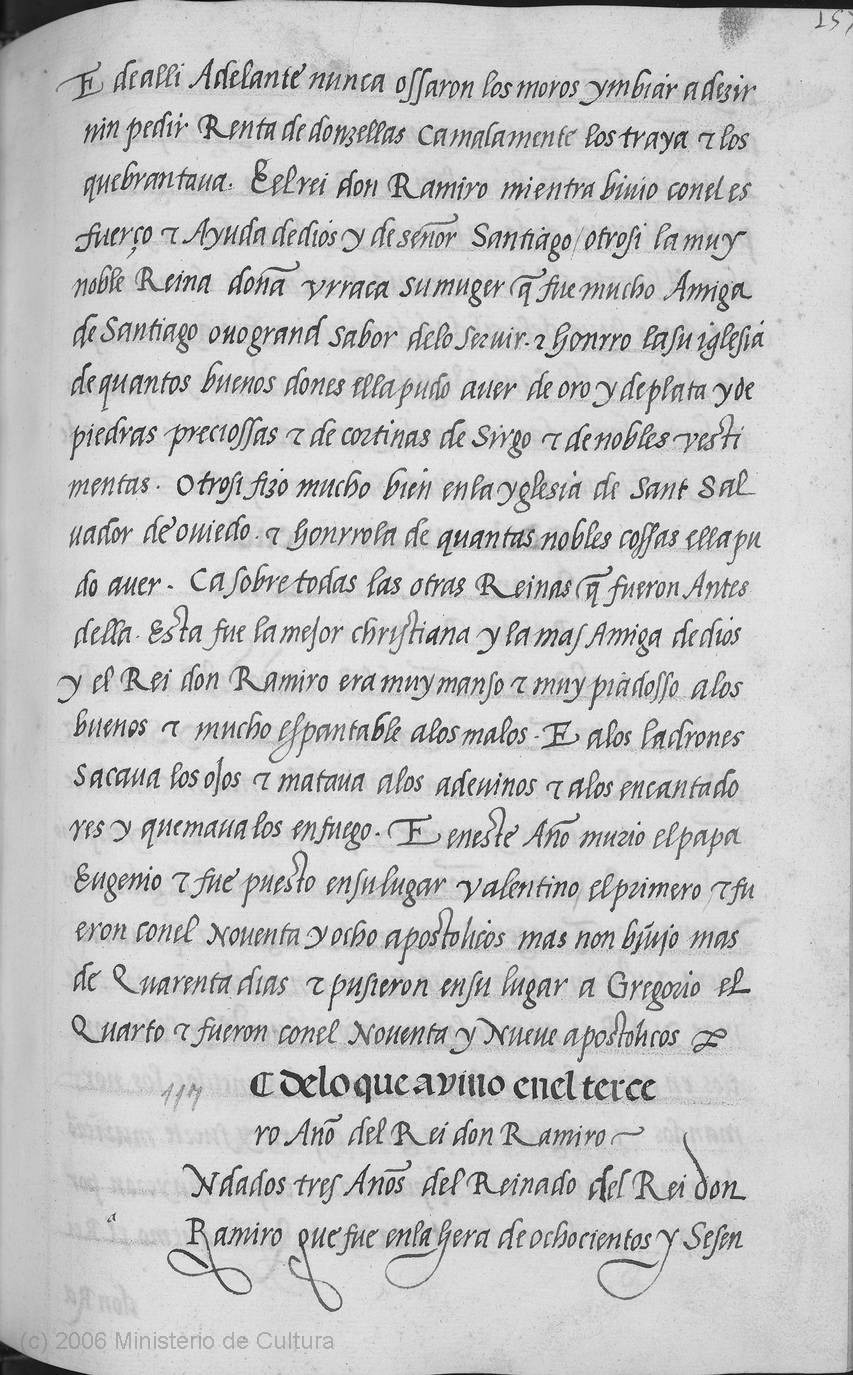 157
E de alli Adelante nunca ossaron los moros ymbiar a dezir
nin pedir Renta de donzellas Ca malamente los traya τ los
quebrantava. E el rei don Ramiro mientra bivio con el es
fuerço τ Ayuda de dios y de señor Santiago / otrosi la muy
noble Reina doña vrraca su muger q̃ fue mucho Amiga
de Santiago ovo grand sabor de lo servir. τ honrro la su iglesia
de quantos buenos dones ella pudo aver de oro y de plata y de
piedras preciossas τ de cortinas de Sirgo τ de nobles vesti
mentas. Otrosi fizo mucho bien en la yglesia de Sant Sal
vador de oviedo. τ honrrola de quantas nobles cossas ella pu
do aver. Ca sobre todas las otras Reinas q̃ fueron Antes
della. Esta fue la mejor christiana y la mas Amiga de dios
y el Rei don Ramiro era muy manso τ muy piadosso a los
buenos τ mucho espantable a los malos. E a los ladrones
sacava los ojos τ matava a los adevinos τ a los encantado
res y quemava los en fuego. E en este Año murio el papa
Eugenio τ fue puesto en su lugar valentino el primero τ fu
eron con el Noventa y ocho apostolicos mas non bivjo mas
de Quarenta dias τ pusieron en su lugar a Gregorio el
Quarto τ fueron con el Noventa y Nueve apostolicos
117 C de lo que avino en el terce
ro Año del Rei don Ramiro
a Ndados tres Años del Reinado del Rei don
Ramiro que fue en la hera de ochocientos y Sesen
(c) 2006 Ministerio de Cultura